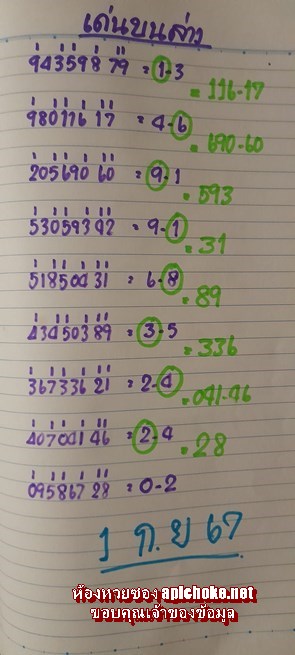 เด่นบนล่าง
943598 79 = 1-3
= 116-17
980116 17 = 4-6
= 690-60
205690 60 = 9-1
= 593
530593 92 = 9-1
= 31
518504 31 = 6-8
= 89
434503 89 = 3-5
= 336
367336 21 = 2-4
= 041-46
407041 46 = 2-4
= 28
095867 28 = 0-2
1 ก.ย 67
ห้องหวยซอง apichoke.net
ขอบคุณเจ้าของข้อมูล